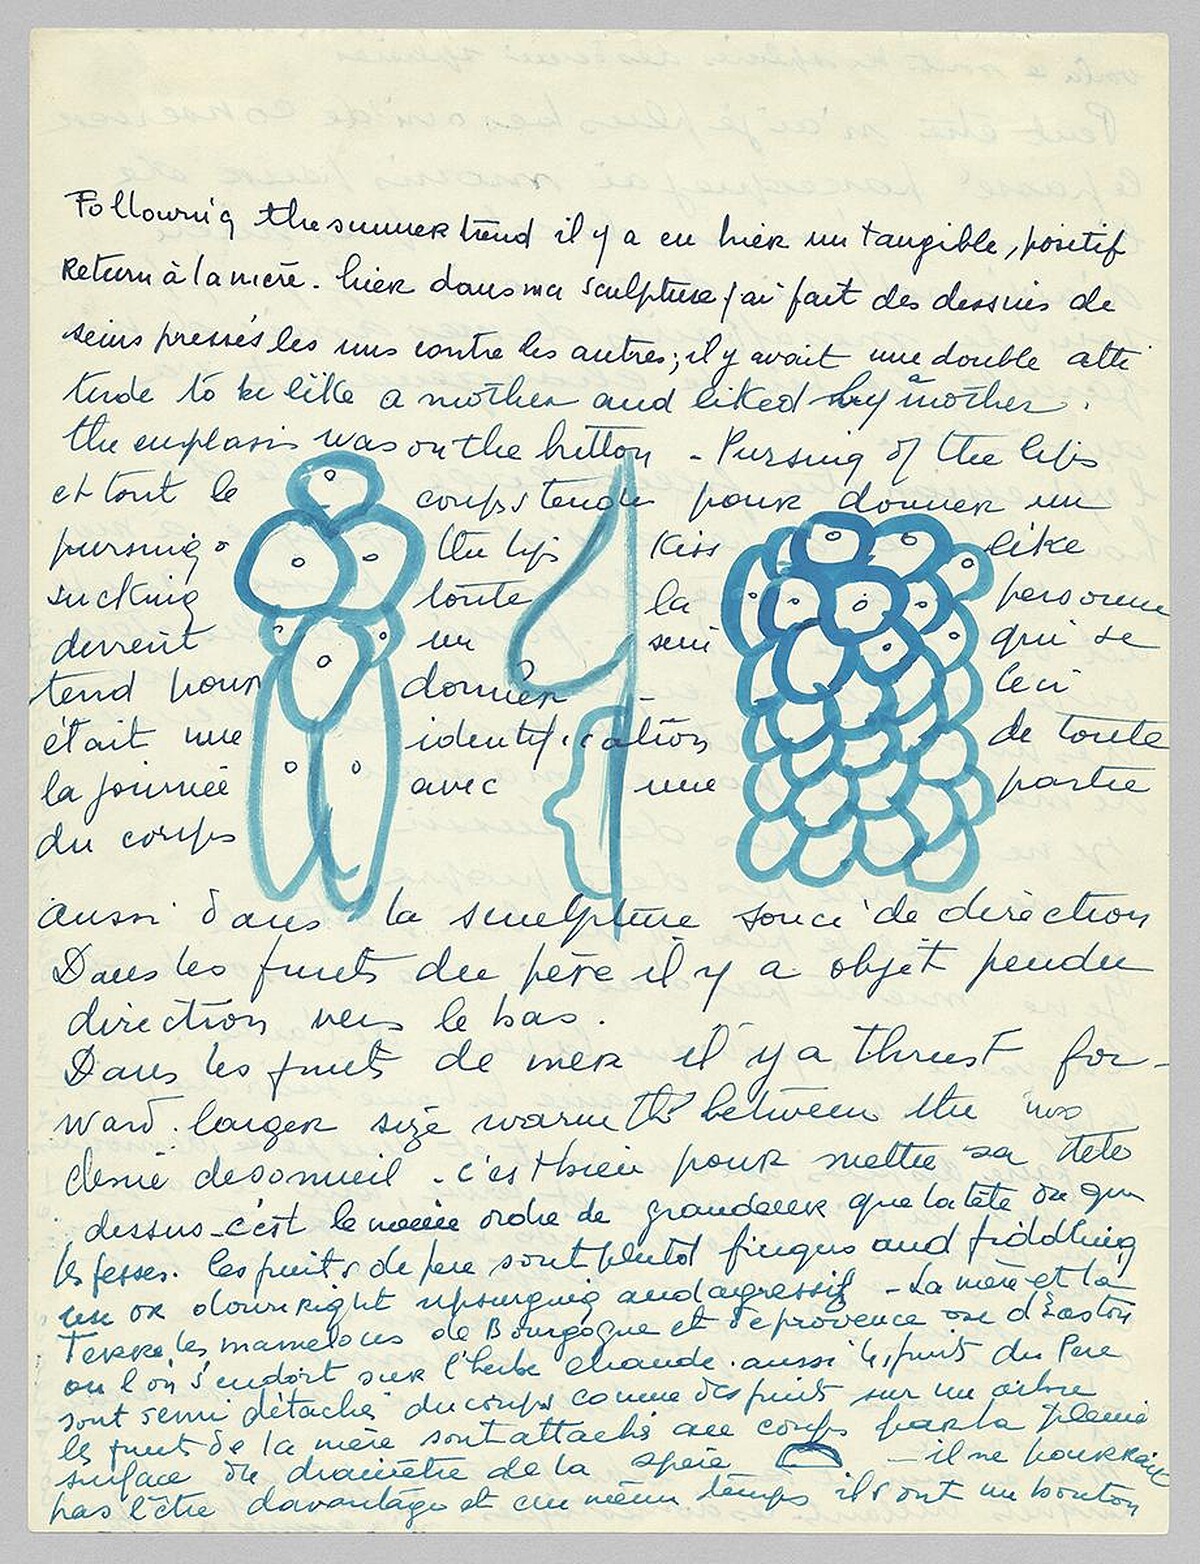 Following the summer trend il y a eu hier un tangible, positif
Return à la mère. hier dans ma sculpture j'ai fait des dessins de
seins pressés les uns contre les autres; il y avait une double atti
tude to be like a mother and liked by a mother.
the emphasis was on the button - Pursing of the lips
et tout le corps tendu pour donner un
pursing the lips Kiss like
sucking toute la personne
devient un sein qui se
tend pour donner - Ceci
était une identification de toute
la journée avec une partie
du corps
aussi dans la sculpture souci de direction
Dans les fruits du père il y a objet pendu
direction vers le bas.
Dans les fruits de mer il y a thrust for-
ward. larger size warmth between the two
de sommeil - c'est bien pour mettre sa tête
dessus - c'est le même ordre de grandeur que la tête ou que
les fesses. les fruits de pere sont plutot fingers and fiddling
or downright upsurging and agressif - La mère et la
Terre les mamelons de Bourgogne et de provence ou d'Easton
ou l'on s'endort sur l'herbe chaude. aussi les fruits du Pere
sont semi détachés du corps comme des fruits sur un arbre
les fruits de la mère sont attachés au corps par la pleine
surface du diamètre de la spère - il ne pourrait
pas l'être davantage et en même temps ils ont un bouton